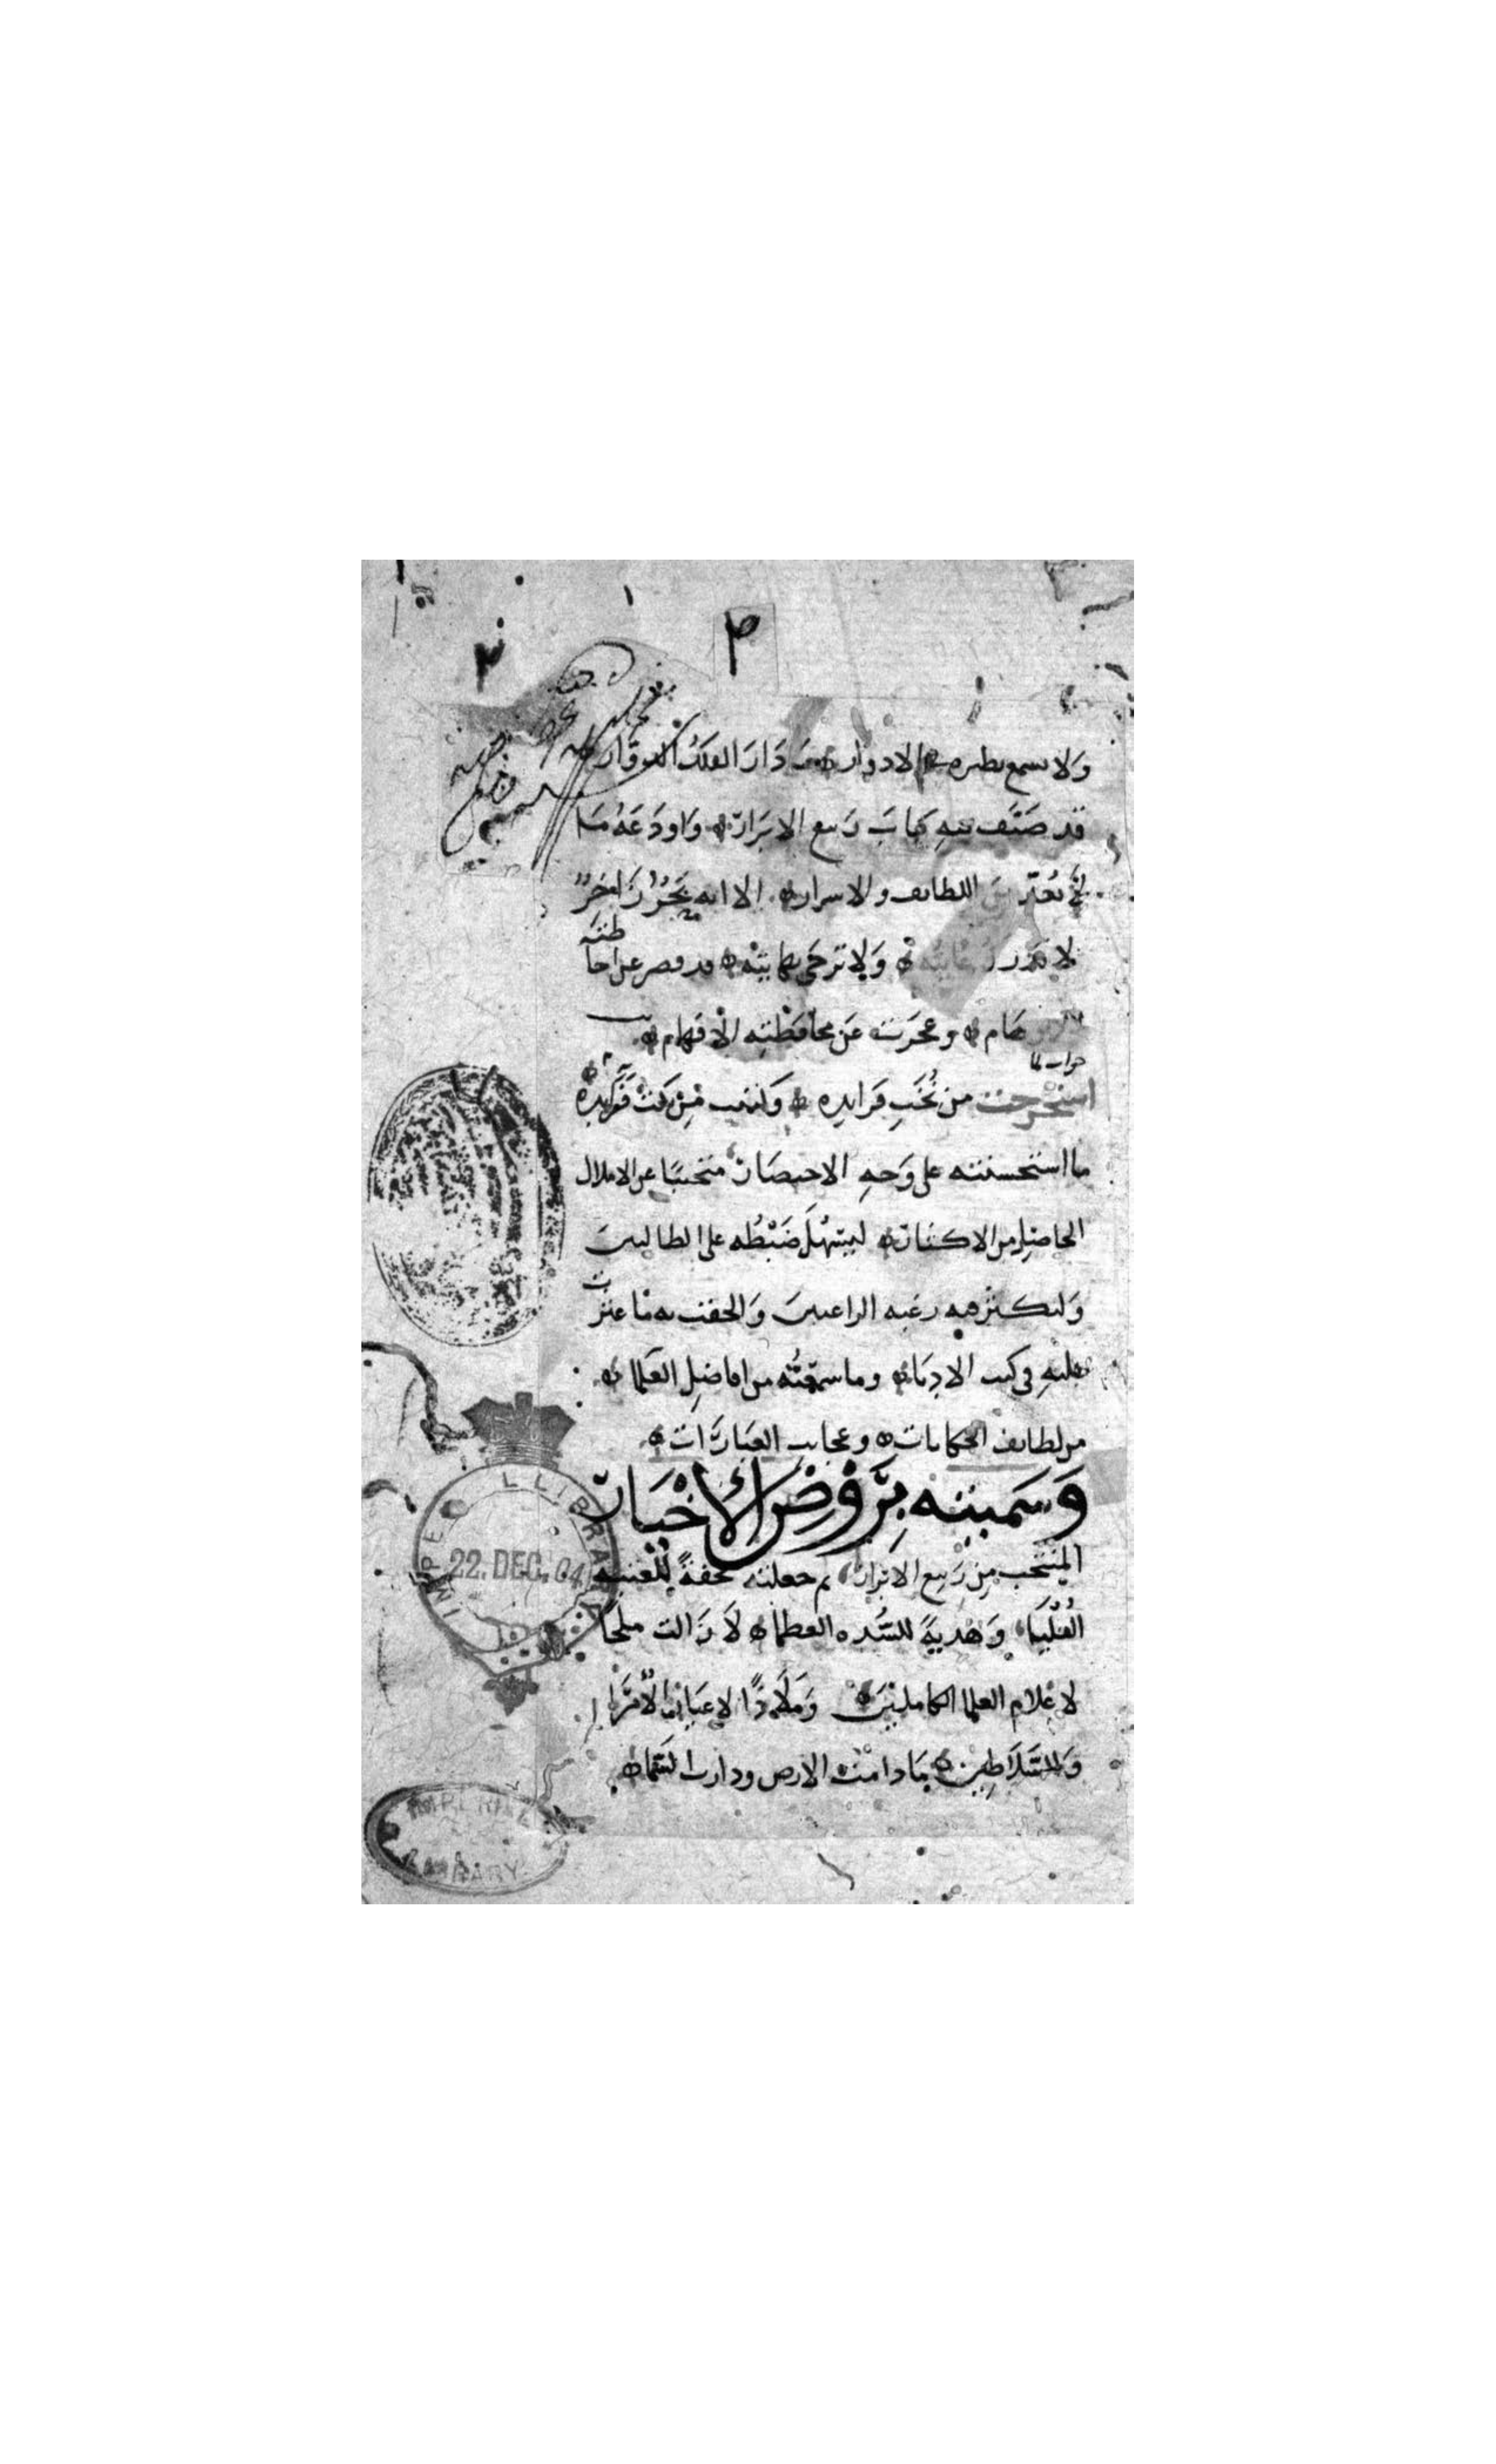 ٣
٢
ولا يسمع بنظيره الادوار ما دار الفلك الدوار
قد صنف فيه كتاب ربيع الابرار واودعه ما
يعد من اللطائف والاسرار الا انه بحر زاخر
لا يدرك غايته ولا ترجى نهايته قد قصر عن احاطته
وعجزت عن محافظته الافهام
جواب لما
استخرجت من نخب فرايده وكتبت من نكت فوايده
ما استحسنته على وجه الاختصار متجنبا عن الاملال
الحاصل من الاكثار ليسهل ضبطه على الطالبين
وليكثر فيه رغبة الراغبين والحقت به ما عثرت
عليه في كتب الادباء وما سمعته من افاضل العلماء
من لطائف الحكايات وعجايب العبارات
وَسَميته بِرَوْضِ الأخْيَار
المنتخب من ربيع الابرار ثم جعلته تحفة للعتبة
العُلْيَا وهدية للسُّده العظما لا زالت ملجأ
لاعلام العلما الكاملين وملاذًا لاعيان الأمرا
والسَّلاطِين مادامت الارض ودارت السماء
IMPE L LIBRARY
22. DEC. 04
IMPERIAL
LIBRARY